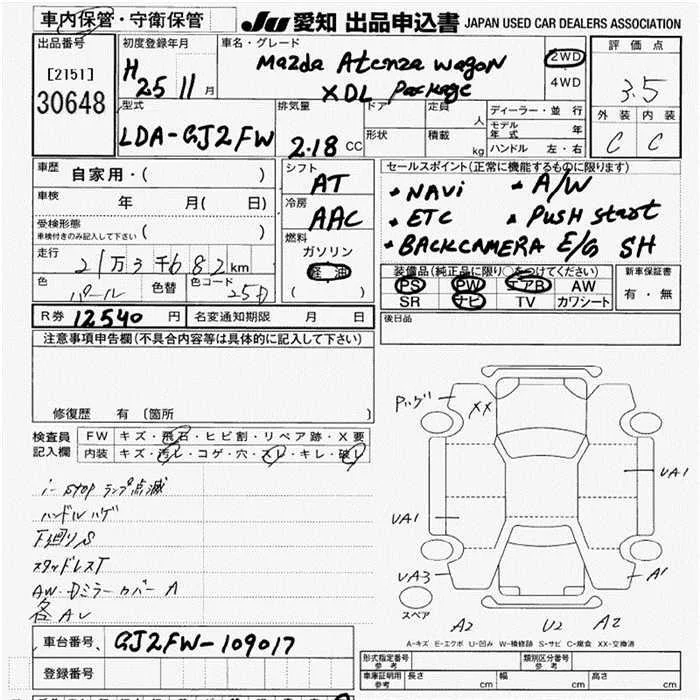 車内保管・守衛保管 JU 愛知 出品申込書 JAPAN USED CAR DEALERS ASSOCIATION
出品番号
[2151]
30648
初度登録年月
H 25 11 月
車名・グレード
Mazda Atenza wagon
XDL Package
2WD
4WD
評価点
3.5
外装 内装
C C
型式
LDA-GJ2FW
排気量
2.18 CC
ドア
定員
人
形状
積載
kg
ディーラー・並行
モデル年式 年
ハンドル 左・右
車歴
自家用・( )
車検
年 月( 日)
受検形態
車検付きのみ記入して下さい ( )
走行
21万3千682km
色
パール
色替
色コード
25D
シフト
AT
冷房
AAC
燃料
ガソリン
軽油
( )
セールスポイント(正常に機能するものに限ります)
・NAVi ・A/W
・ETC ・PUSH start
・BACKCAMERA E/G SH
装備品(純正品に限り○をつけてください)
PS PW エアB AW
SR ナビ TV カワシート
新車保証書
有・無
R券 12540 円
名変通知期限 月 日
後日品
注意事項申告欄(不具合内容等は具体的に記入して下さい)
修復歴 有 〔箇所 〕
検査員記入欄
FW キズ・飛石・ヒビ割・リペア跡・X要
内装 キズ・汚レ・コゲ・穴・スレ・キレ・破レ
i-stop ランプ点滅
ハンドルハゲ
下廻りS
スタッドレスT
AW・Dミラーカバー A
各AU
Pハゲ
XX
UA1
UA1
UA3
A1
スペア
A2
U2
A2
A-キズ E-エクボ U-凹み W-補修跡 S-サビ C-腐食 XX-交換済
車台番号 GJ2FW-109017
登録番号
形式指定番号
参考
類別区分番号
参考
車庫証明用
参考
長さ cm
幅 cm
高さ cm